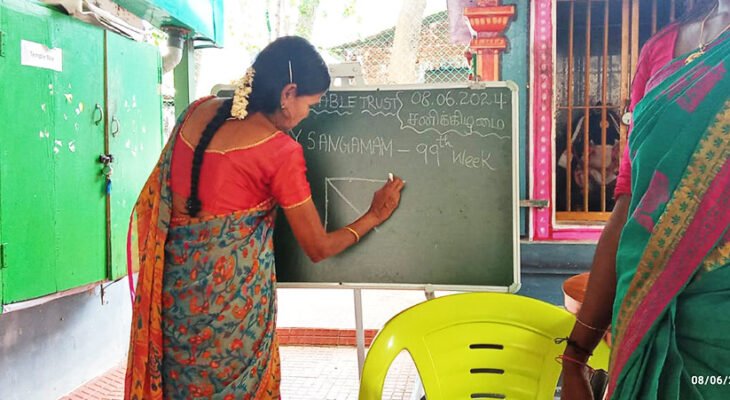 Temple Box
ABLE TRUST 08.06.2024
சனிக்கிழமை
Y SANGAMAM - 99th Week
08/06/2